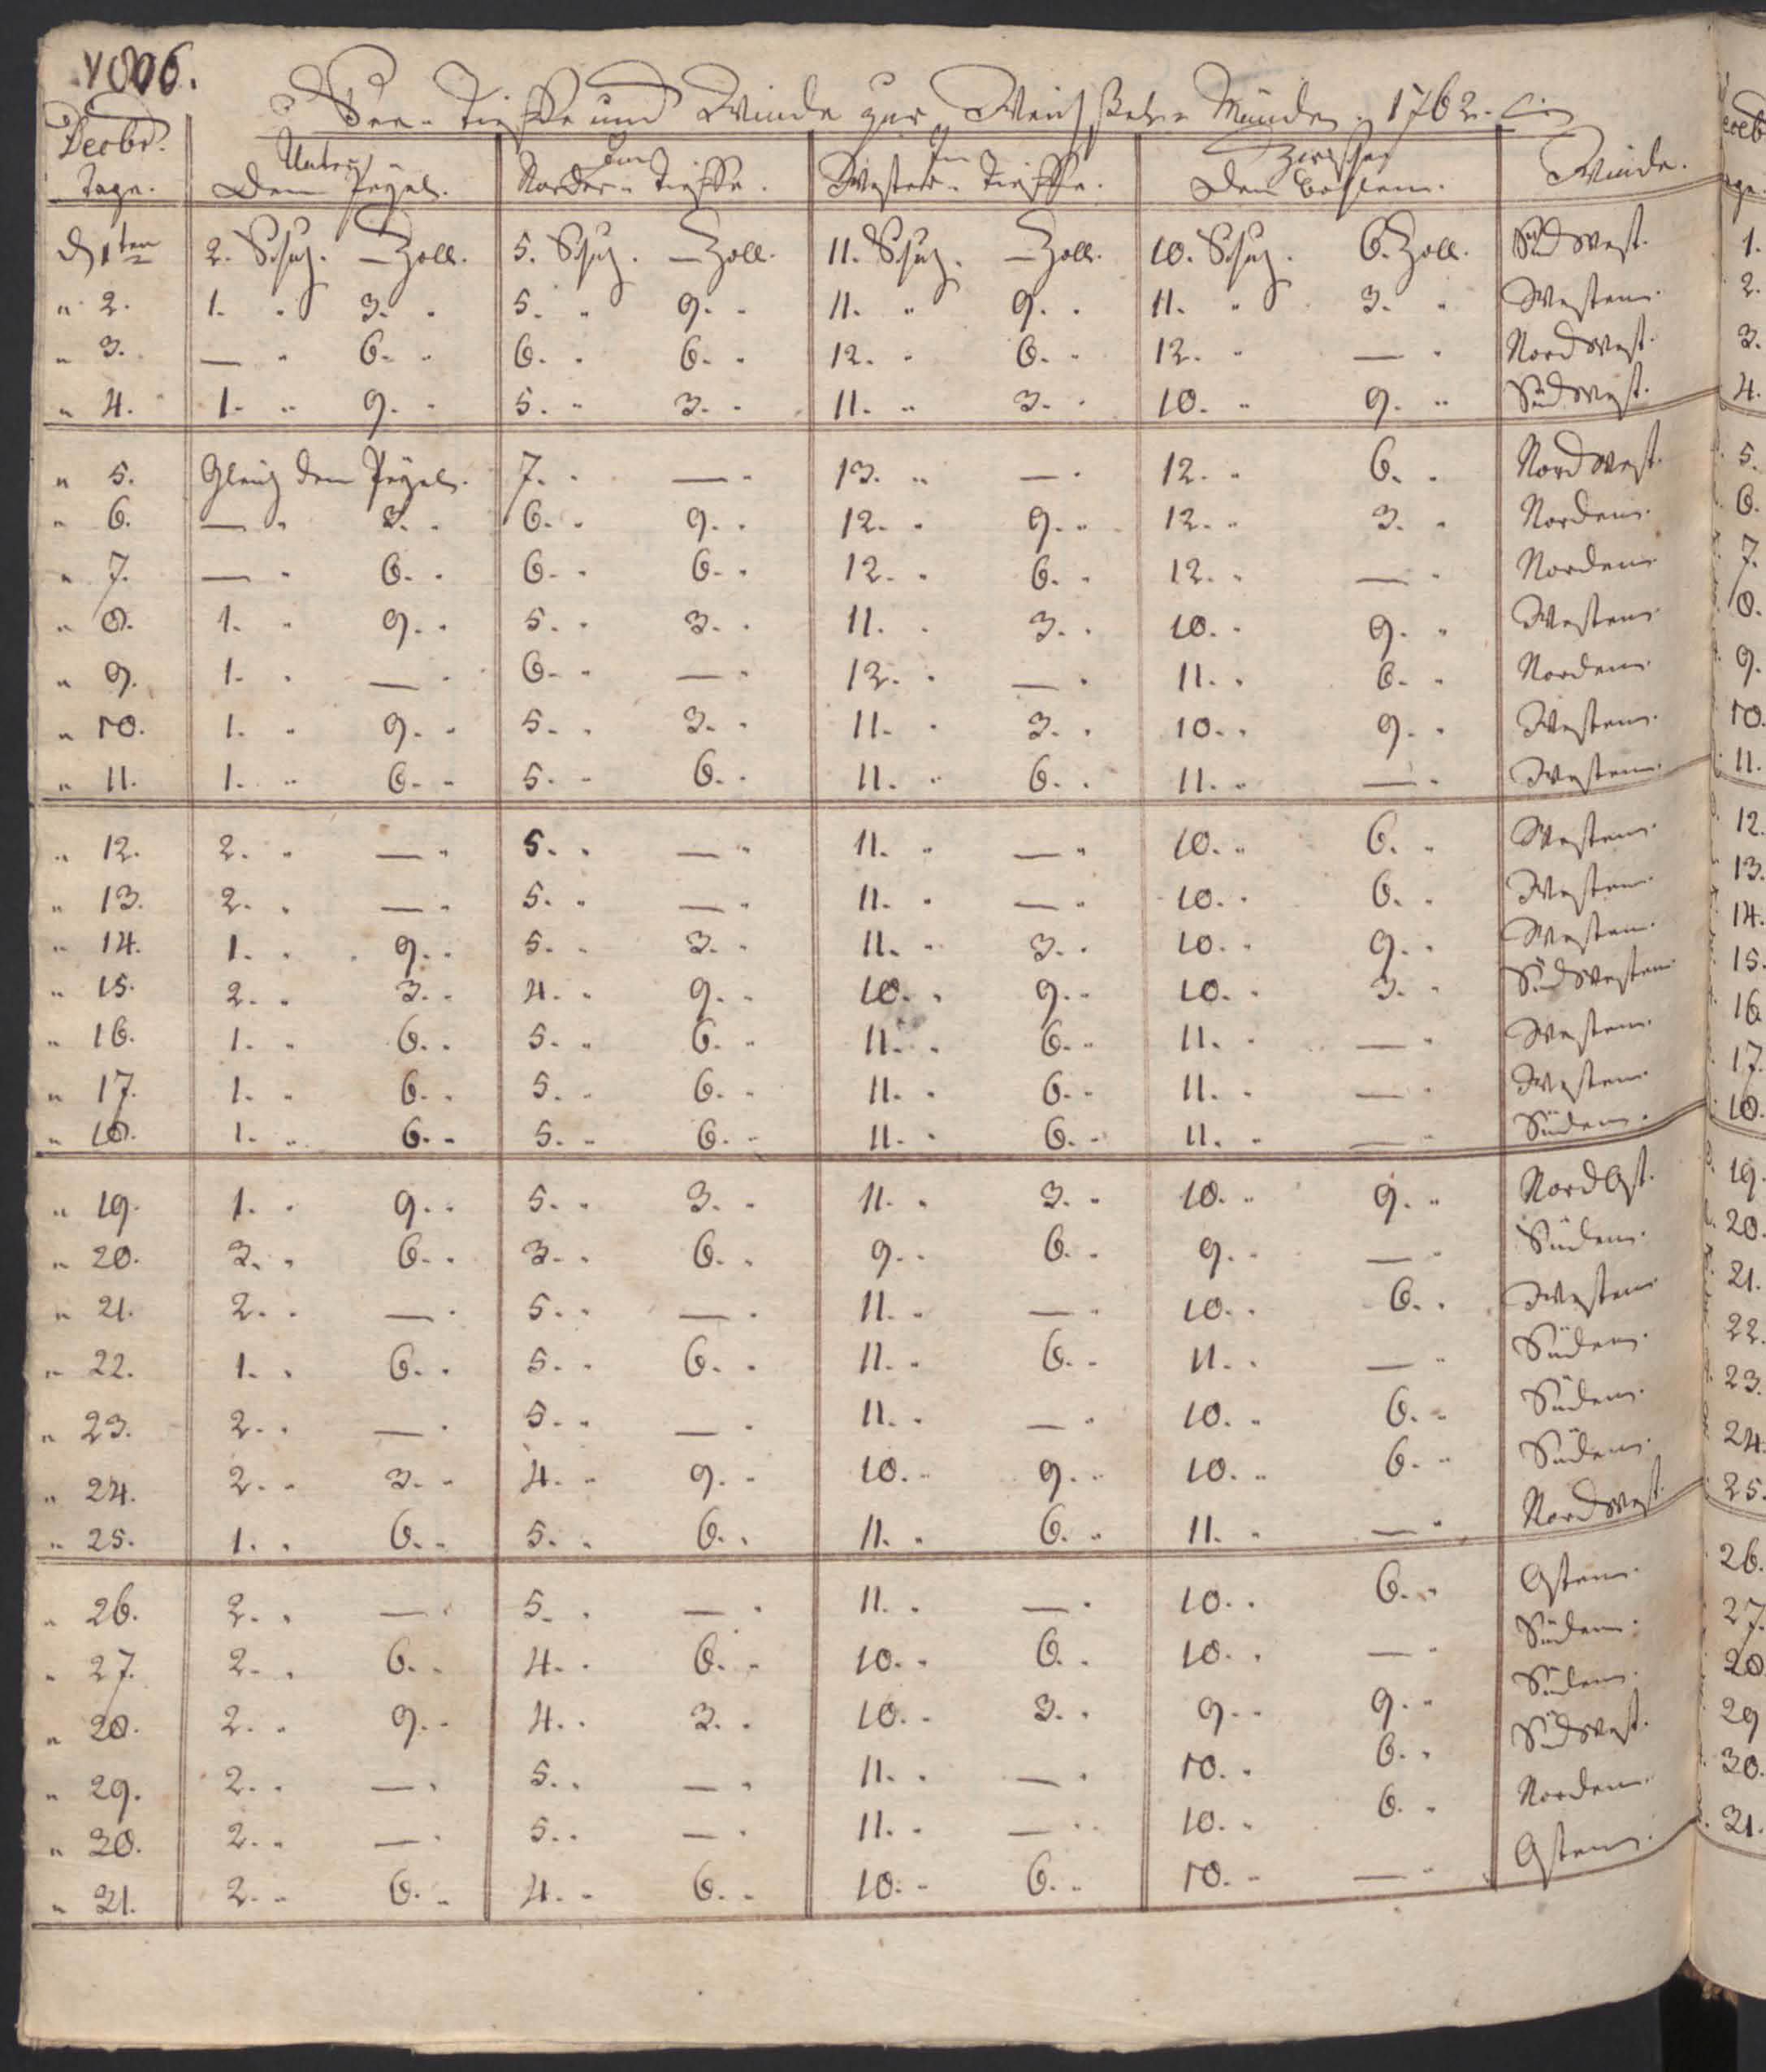 1806.
See-Tieffe und Winde zur Weichselmünde. 1762.
Decbr. Tage. | Unter dem Pegel. | Im Norder-Tieffe. | Im Wester-Tieffe. | Zwischen den Bohlen. | Winde.
d 1ten | 2. Schuh. — Zoll. | 5. Schuh. — Zoll. | 11. Schuh. — Zoll. | 10. Schuh. 6. Zoll. | Südwest.
" 2. | 1. " 3. " | 5. " 9. " | 11. " 9. " | 11. " 3. " | Westen.
" 3. | — " 6. " | 6. " 6. " | 12. " 6. " | 12. " — " | Nordwest.
" 4. | 1. " 9. " | 5. " 3. " | 11. " 3. " | 10. " 9. " | Südwest.
" 5. | Gleich dem Pegel. | 7. " — " | 13. " — " | 12. " 6. " | Nordwest.
" 6. | — " 3. " | 6. " 9. " | 12. " 9. " | 12. " 3. " | Norden.
" 7. | — " 6. " | 6. " 6. " | 12. " 6. " | 12. " — " | Norden.
" 8. | 1. " 9. " | 5. " 3. " | 11. " 3. " | 10. " 9. " | Westen.
" 9. | 1. " — " | 6. " — " | 12. " — " | 11. " 6. " | Norden.
" 10. | 1. " 9. " | 5. " 3. " | 11. " 3. " | 10. " 9. " | Westen.
" 11. | 1. " 6. " | 5. " 6. " | 11. " 6. " | 11. " — " | Westen.
" 12. | 2. " — " | 5. " — " | 11. " — " | 10. " 6. " | Westen.
" 13. | 2. " — " | 5. " — " | 11. " — " | 10. " 6. " | Westen.
" 14. | 1. " 9. " | 5. " 3. " | 11. " 3. " | 10. " 9. " | Westen.
" 15. | 2. " 3. " | 4. " 9. " | 10. " 9. " | 10. " 3. " | Südwesten.
" 16. | 1. " 6. " | 5. " 6. " | 11. " 6. " | 11. " — " | Westen.
" 17. | 1. " 6. " | 5. " 6. " | 11. " 6. " | 11. " — " | Westen.
" 18. | 1. " 6. " | 5. " 6. " | 11. " 6. " | 11. " — " | Süden.
" 19. | 1. " 9. " | 5. " 3. " | 11. " 3. " | 10. " 9. " | NordOst.
" 20. | 3. " 6. " | 3. " 6. " | 9. " 6. " | 9. " — " | Süden.
" 21. | 2. " — " | 5. " — " | 11. " — " | 10. " 6. " | Westen.
" 22. | 1. " 6. " | 5. " 6. " | 11. " 6. " | 11. " — " | Süden.
" 23. | 2. " — " | 5. " — " | 11. " — " | 10. " 6. " | Süden.
" 24. | 2. " 3. " | 4. " 9. " | 10. " 9. " | 10. " 6. " | Süden.
" 25. | 1. " 6. " | 5. " 6. " | 11. " 6. " | 11. " — " | Nordwest.
" 26. | 2. " — " | 5. " — " | 11. " — " | 10. " 6. " | Osten.
" 27. | 2. " 6. " | 4. " 6. " | 10. " 6. " | 10. " — " | Süden.
" 28. | 2. " 9. " | 4. " 3. " | 10. " 3. " | 9. " 9. " | Süden.
" 29. | 2. " — " | 5. " — " | 11. " — " | 10. " 6. " | Südwest.
" 30. | 2. " — " | 5. " — " | 11. " — " | 10. " 6. " | Norden.
" 31. | 2. " 6. " | 4. " 6. " | 10. " 6. " | 10. " — " | Osten.
1.
2.
3.
4.
5.
6.
7.
8.
9.
10.
11.
12.
13.
14.
15.
16
17.
18.
19.
20.
21.
22.
23.
24.
25.
26.
27.
28
29
30.
31.